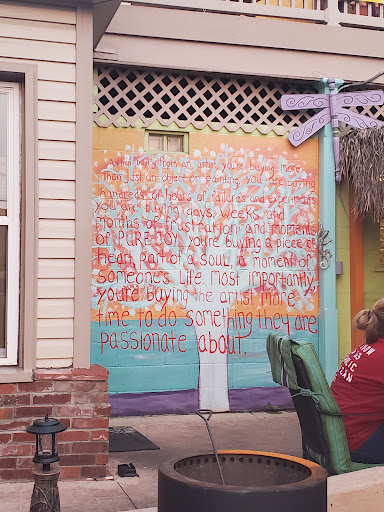 When you buy from an artist, you're buying more
than just an object or painting, you are buying
hundreds of hours of failures and experiments
you are buying days, weeks and
months of frustration and moments
of PURE JOY. you're buying a piece of
heart, part of a soul, a moment of
someone's life. most importantly
you're buying the artist more
time to do something they are
passionate about.